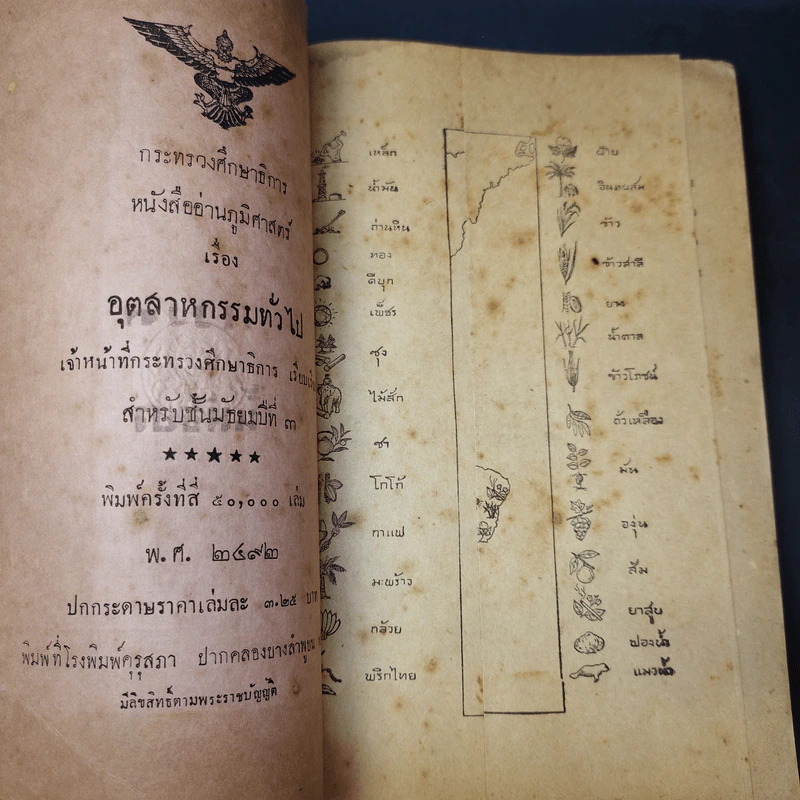 กระทรวงศึกษาธิการ
หนังสืออ่านภูมิศาสตร์
เรื่อง
อุตสาหกรรมทั่วไป
เจ้าหน้าที่กระทรวงศึกษาธิการ
สำหรับชั้นมัธยมปีที่ ๓
★★★★★
พิมพ์ครั้งที่สี่ ๕๐,๐๐๐ เล่ม
พ.ศ. ๒๔๙๒
ปกกระดาษราคาเล่มละ ๓.๒๕ บาท
พิมพ์ที่โรงพิมพ์คุรุสภา ปากคลองบางลำพูบน
มีลิขสิทธิ์ตามพระราชบัญญัติ
เหล็ก
น้ำมัน
ถ่านหิน
ทอง
ดีบุก
เพ็ชร
ซุง
ไม้สัก
ชา
โกโก้
กาแฟ
มะพร้าว
กล้วย
พริกไทย
ฝ้าย
อินทผลัม
ข้าว
ข้าวสาลี
ยาง
น้ำตาล
ข้าวโภชน์
ถั่วเหลือง
มัน
องุ่น
ส้ม
ยาสูบ
ฟองน้ำ
แมวน้ำ